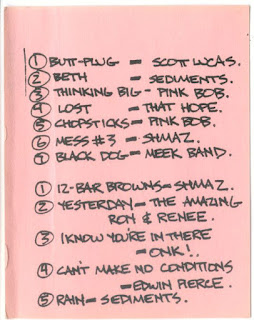 ① BUTT-PLUG = SCOTT LUCAS.
② BETH = SEDIMENTS.
③ THINKING BIG - PINK BOB.
④ LOST - THAT HOPE.
⑤ CHOPSTICKS = PINK BOB.
⑥ MESS #3 = SHMAZ.
⑦ BLACK DOG = MEEK BAND.
① 12-BAR BROWNS = SHMAZ.
② YESTERDAY = THE AMAZING
RON & RENEE.
③ I KNOW YOU'RE IN THERE
= ONK!.
④ CAN'T MAKE NO CONDITIONS
= EDWIN PIERCE.
⑤ RAIN = SEDIMENTS.